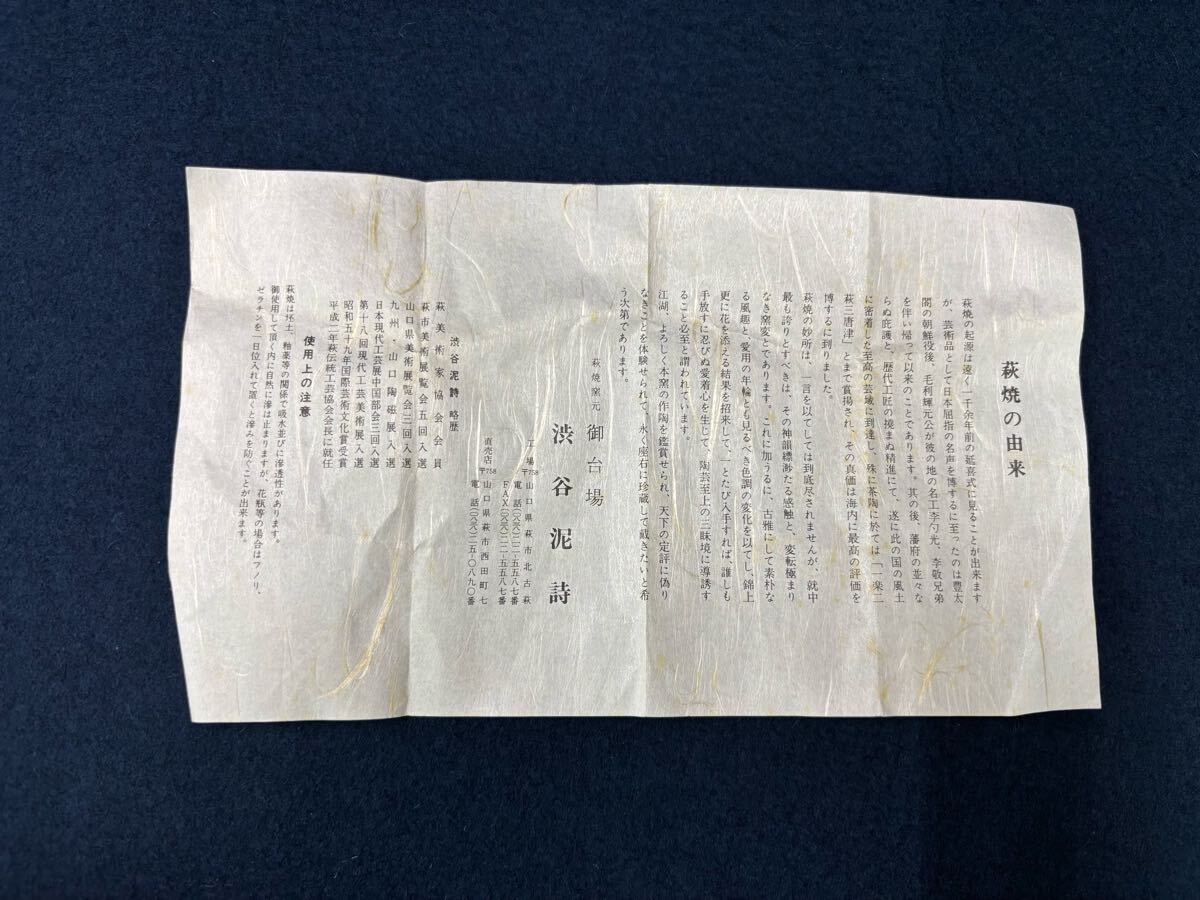 萩焼の由来
萩焼の起源は遠く一千余年前の延喜式に見ることが出来ます
が、芸術品として日本屈指の名声を博するに至ったのは豊太
閤の朝鮮役後、毛利輝元公が彼の地の名工李勺光、李敬兄弟
を伴い帰って以来のことであります。其の後、藩府の並々な
らぬ庇護と、歴代工匠の撓まぬ精進にて、遂に此の国の風土
に密着した至高の芸域に到達し、殊に茶陶に於ては「一楽二
萩三唐津」とまで賞揚され、その真価は海内に最高の評価を
博するに到りました。
萩焼の妙所は、一言を以てしては到底尽されませんが、就中
最も誇りとすべきは、その神韻縹渺たる感触と、変転極まり
なき窯変とであります。これに加うるに、古雅にして素朴な
る風趣と、愛用の年輪とも見るべき色調の変化を以てし、錦上
更に花を添える結果を招来して、一とたび入手すれば、誰しも
手放すに忍びぬ愛着心を生じて、陶芸至上の三昧境に導誘す
ること必至と謂われています。
江湖、よろしく本窯の作陶を鑑賞せられ、天下の定評に偽り
なきことを体験せられて、永く座右に珍蔵して戴きたいと希
う次第であります。
萩焼窯元 御台場
渋谷泥詩
工場 〒758 山口県萩市北古萩
電話(〇八三八)二二-五五八七番
FAX(〇八三八)二二-五五八七番
直売店 〒758 山口県萩市西田町七
電話(〇八三八)二五-〇八九〇番
渋谷泥詩 略歴
萩美術家協会会員
萩市美術展覧会五回入選
山口県美術展覧会三回入選
九州、山口陶磁展入選
日本現代工芸展中国部会三回入選
第十八回現代工芸美術展入選
昭和五十九年国際芸術文化賞受賞
平成二年萩伝統工芸協会会長に就任
使用上の注意
萩焼は坯土、釉薬等の関係で吸水並びに滲透性があります。
御使用して頂く内に自然に滲は止まりますが、花瓶等の場合はフノリ、
ゼラチンを一日位入れて置くと滲みを防ぐことが出来ます。